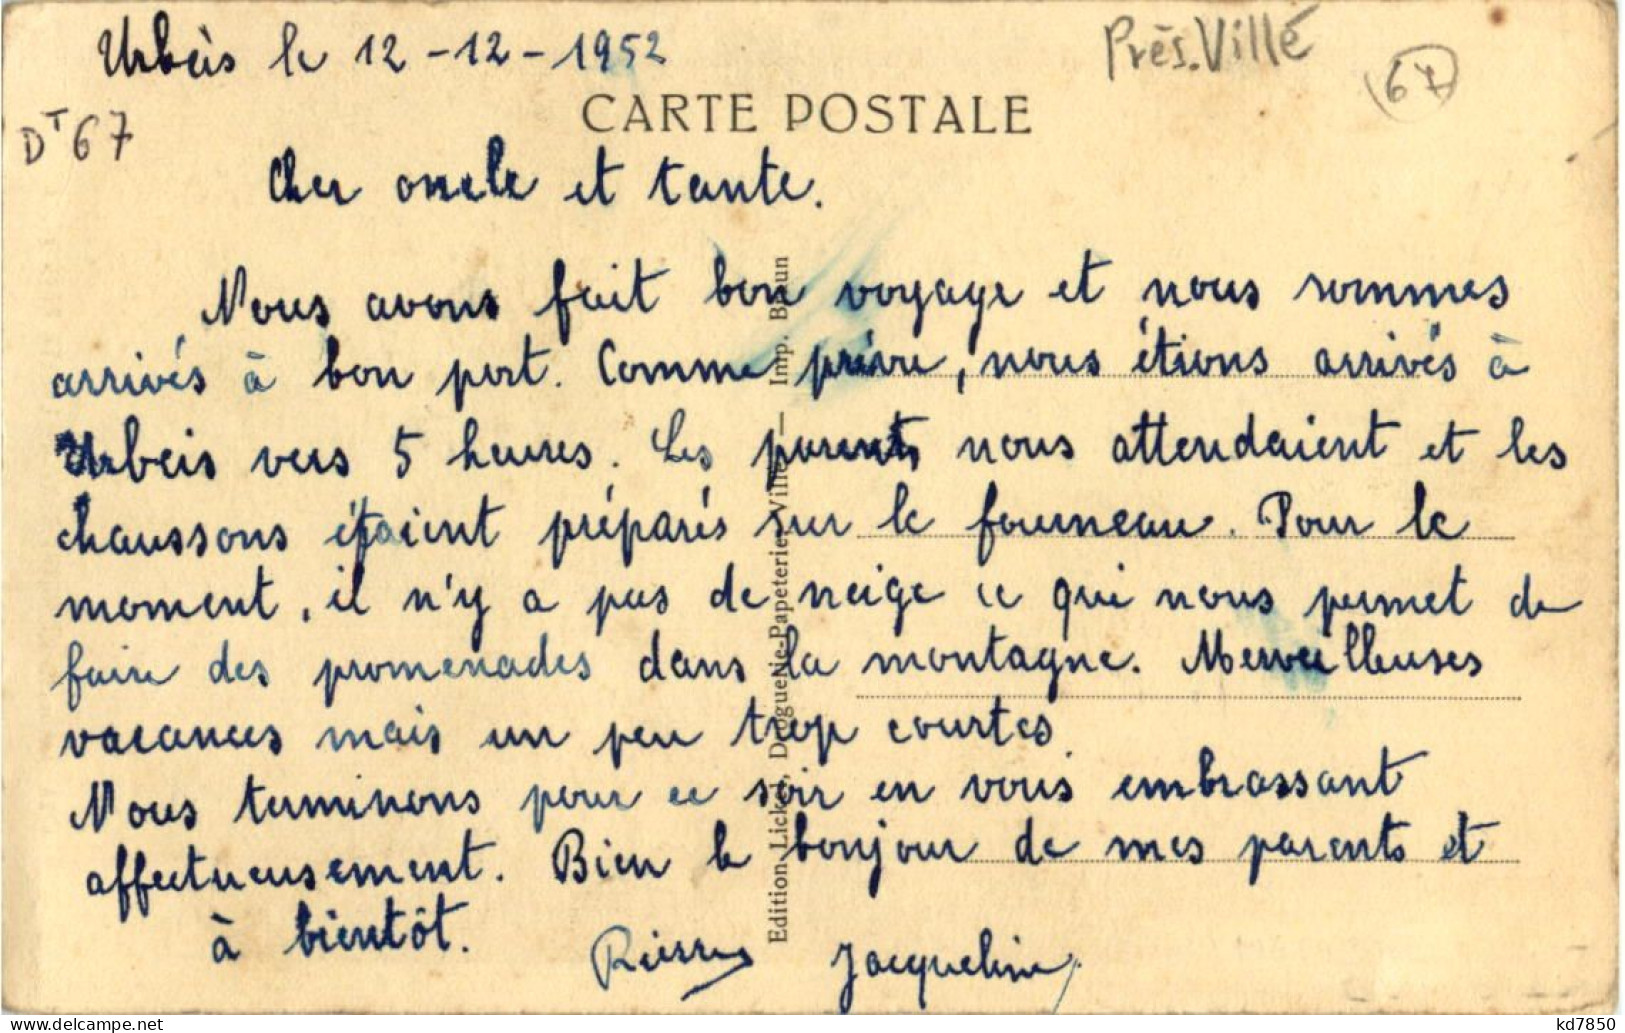 Urbeis le 12-12-1952
Près. Villé
67
DT 67
CARTE POSTALE
Cher oncle et tante.
Nous avons fait bon voyage et nous sommes
arrivés à bon port. Comme prévu, nous étions arrivés à
Urbeis vers 5 heures. Les parents nous attendaient et les
chaussons étaient préparés sur le fourneau. Pour le
moment, il n'y a pas de neige ce qui nous permet de
faire des promenades dans la montagne. Merveilleuses
vacances mais un peu trop courtes.
Nous terminons pour ce soir en vous embrassant
affectueusement. Bien le bonjour de mes parents et
à bientôt.
Pierre Jacqueline
Edition Lickel, Droguerie-Papeterie, Villé — Imp. Braun
kd7850